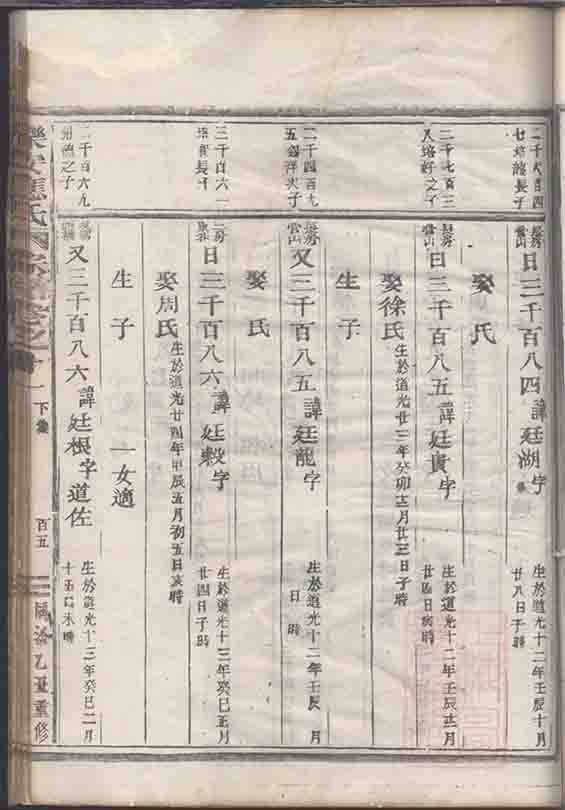 二千六百四
七培 長子
長房
雲山
日三千百八四諱廷湖字
生於道光十二年壬辰十月
廿八日子時
娶氏
二千七百三
又培好之子
長房
雲山
日三千百八五諱廷貴字
生於道光十二年壬辰十二月
廿四日亥時
娶徐氏
生於道光廿三年癸卯十二月廿三日子時
生子
二千四百九
五 祥次子
長房
雲山
又三千百八五諱廷龍字
生於道光十二年壬辰 月
日 時
娶氏
三千百六一
培 長子
二房
日三千百八六諱廷穀字
生於道光十三年癸巳正月
廿四日子時
娶周氏
生於道光廿四年甲辰五月初五日亥時
生子
一女適
二千百六九
之子
又三千百八六諱廷根字道佐
生於道光十三年癸巳二月
十五日未時
樂安 氏 宗譜卷之十一
下
百五
同治乙丑重修